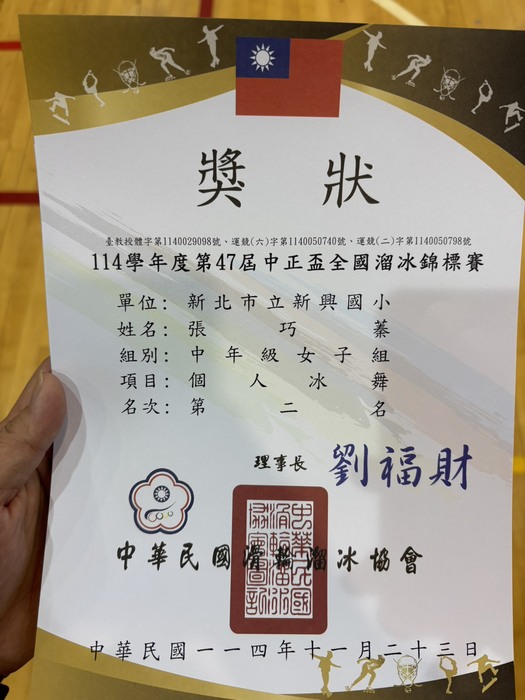 獎狀
臺教授體字第1140029098號、運競(六)字第1140050740號、運競(二)字第1140050798號
114學年度第47屆中正盃全國溜冰錦標賽
單位：新北市立新興國小
姓名：張巧蓁
組別：中年級女子組
項目：個人冰舞
名次：第二名
理事長 劉福財
中華民國滑輪溜冰協會
中華民國一一四年十一月二十三日